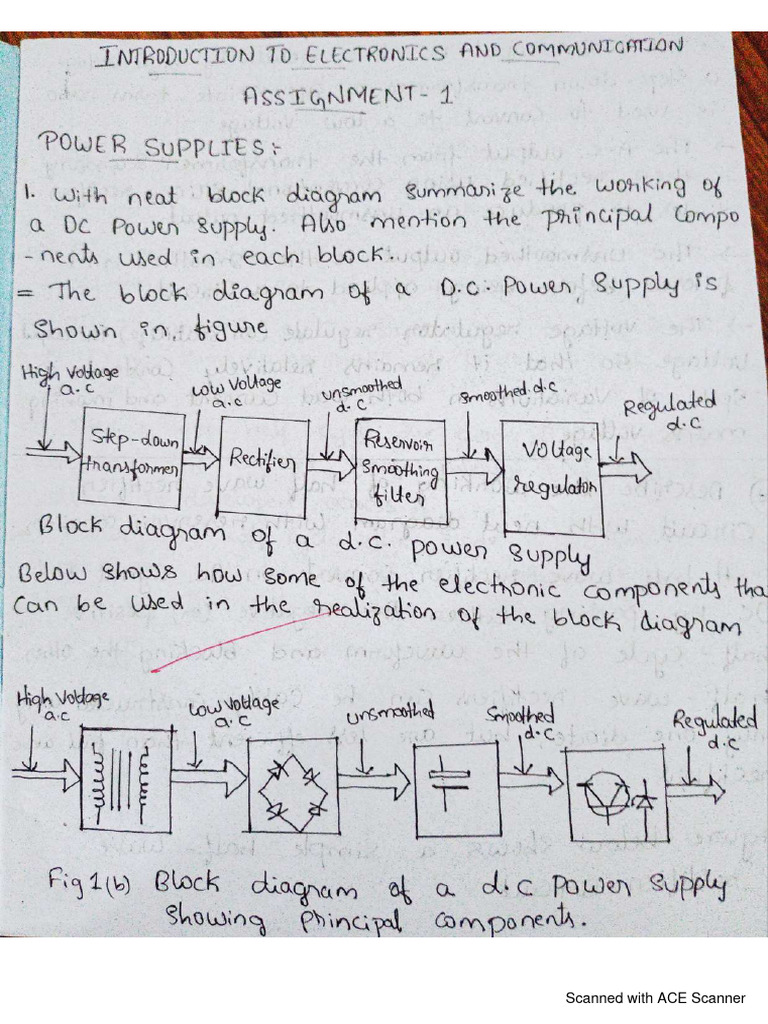 INTRODUCTION TO ELECTRONICS AND COMMUNICATION
ASSIGNMENT-1
POWER SUPPLIES:-
1. With neat block diagram summarize the working of
a DC Power supply. Also mention the principal compo
-nents used in each block.
= The block diagram of a D.C. Power Supply is
Shown in figure
High Voltage
a.c
Low Voltage
a.c
unsmoothed
d.c
smoothed d.c
Regulated
d.c
Step-down
transformer
Rectifier
Reservoir
smoothing
filter
Voltage
regulator
Block diagram of a d.c. power supply
Below shows how some of the electronic components tha
can be used in the realization of the block diagram
High Voltage
a.c
Low Voltage
a.c
unsmoothed
Smoothed
d.c
Regulated
d.c
Fig 1(b) Block diagram of a d.c power supply
showing principal components.
Scanned with ACE Scanner